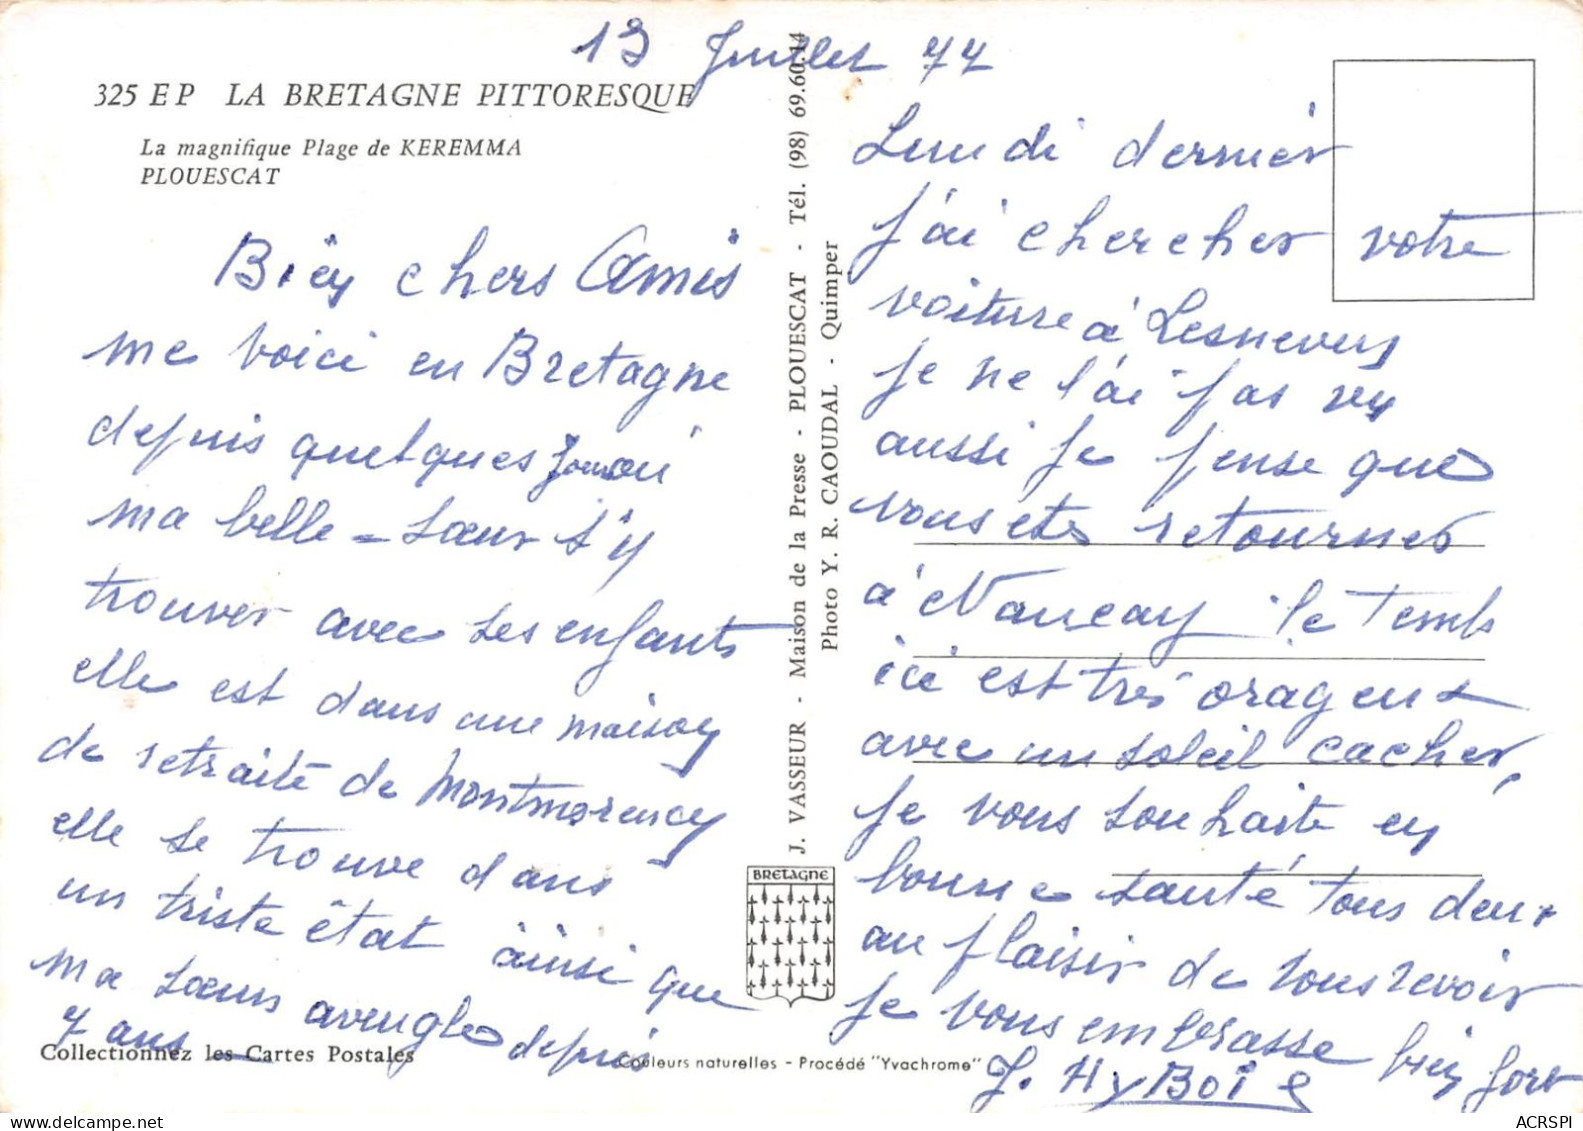 13 Juillet 77
325 EP LA BRETAGNE PITTORESQUE
La magnifique Plage de KEREMMA
PLOUESCAT
Bien chers Amis
me voici en Bretagne
depuis quelques jours où
ma belle-sœur s'y
trouver avec ses enfants
elle est dans une maison
de retraité de Montmorency
elle se trouve dans
un triste êtat ainsi que
ma sœur aveugle depuis
7 ans
Collectionnez les Cartes Postales
J. VASSEUR - Maison de la Presse - PLOUESCAT - Tél. (98) 69.60.14
Photo Y. R. CAOUDAL - Quimper
BRETAGNE
Couleurs naturelles - Procédé "Yvachrome"
Lundi dernier
j'ai chercher votre
voiture à Lesneven
je ne l'ai pas vu
aussi je pense que
vous etes retourner
à Nançay le temps
ici est très orageux
avec un soleil cacher,
je vous souhaite en
bonne santé tous deux
au plaisir de vous revoir
je vous embrasse bien fort
J. HyBoie
ACRSPI